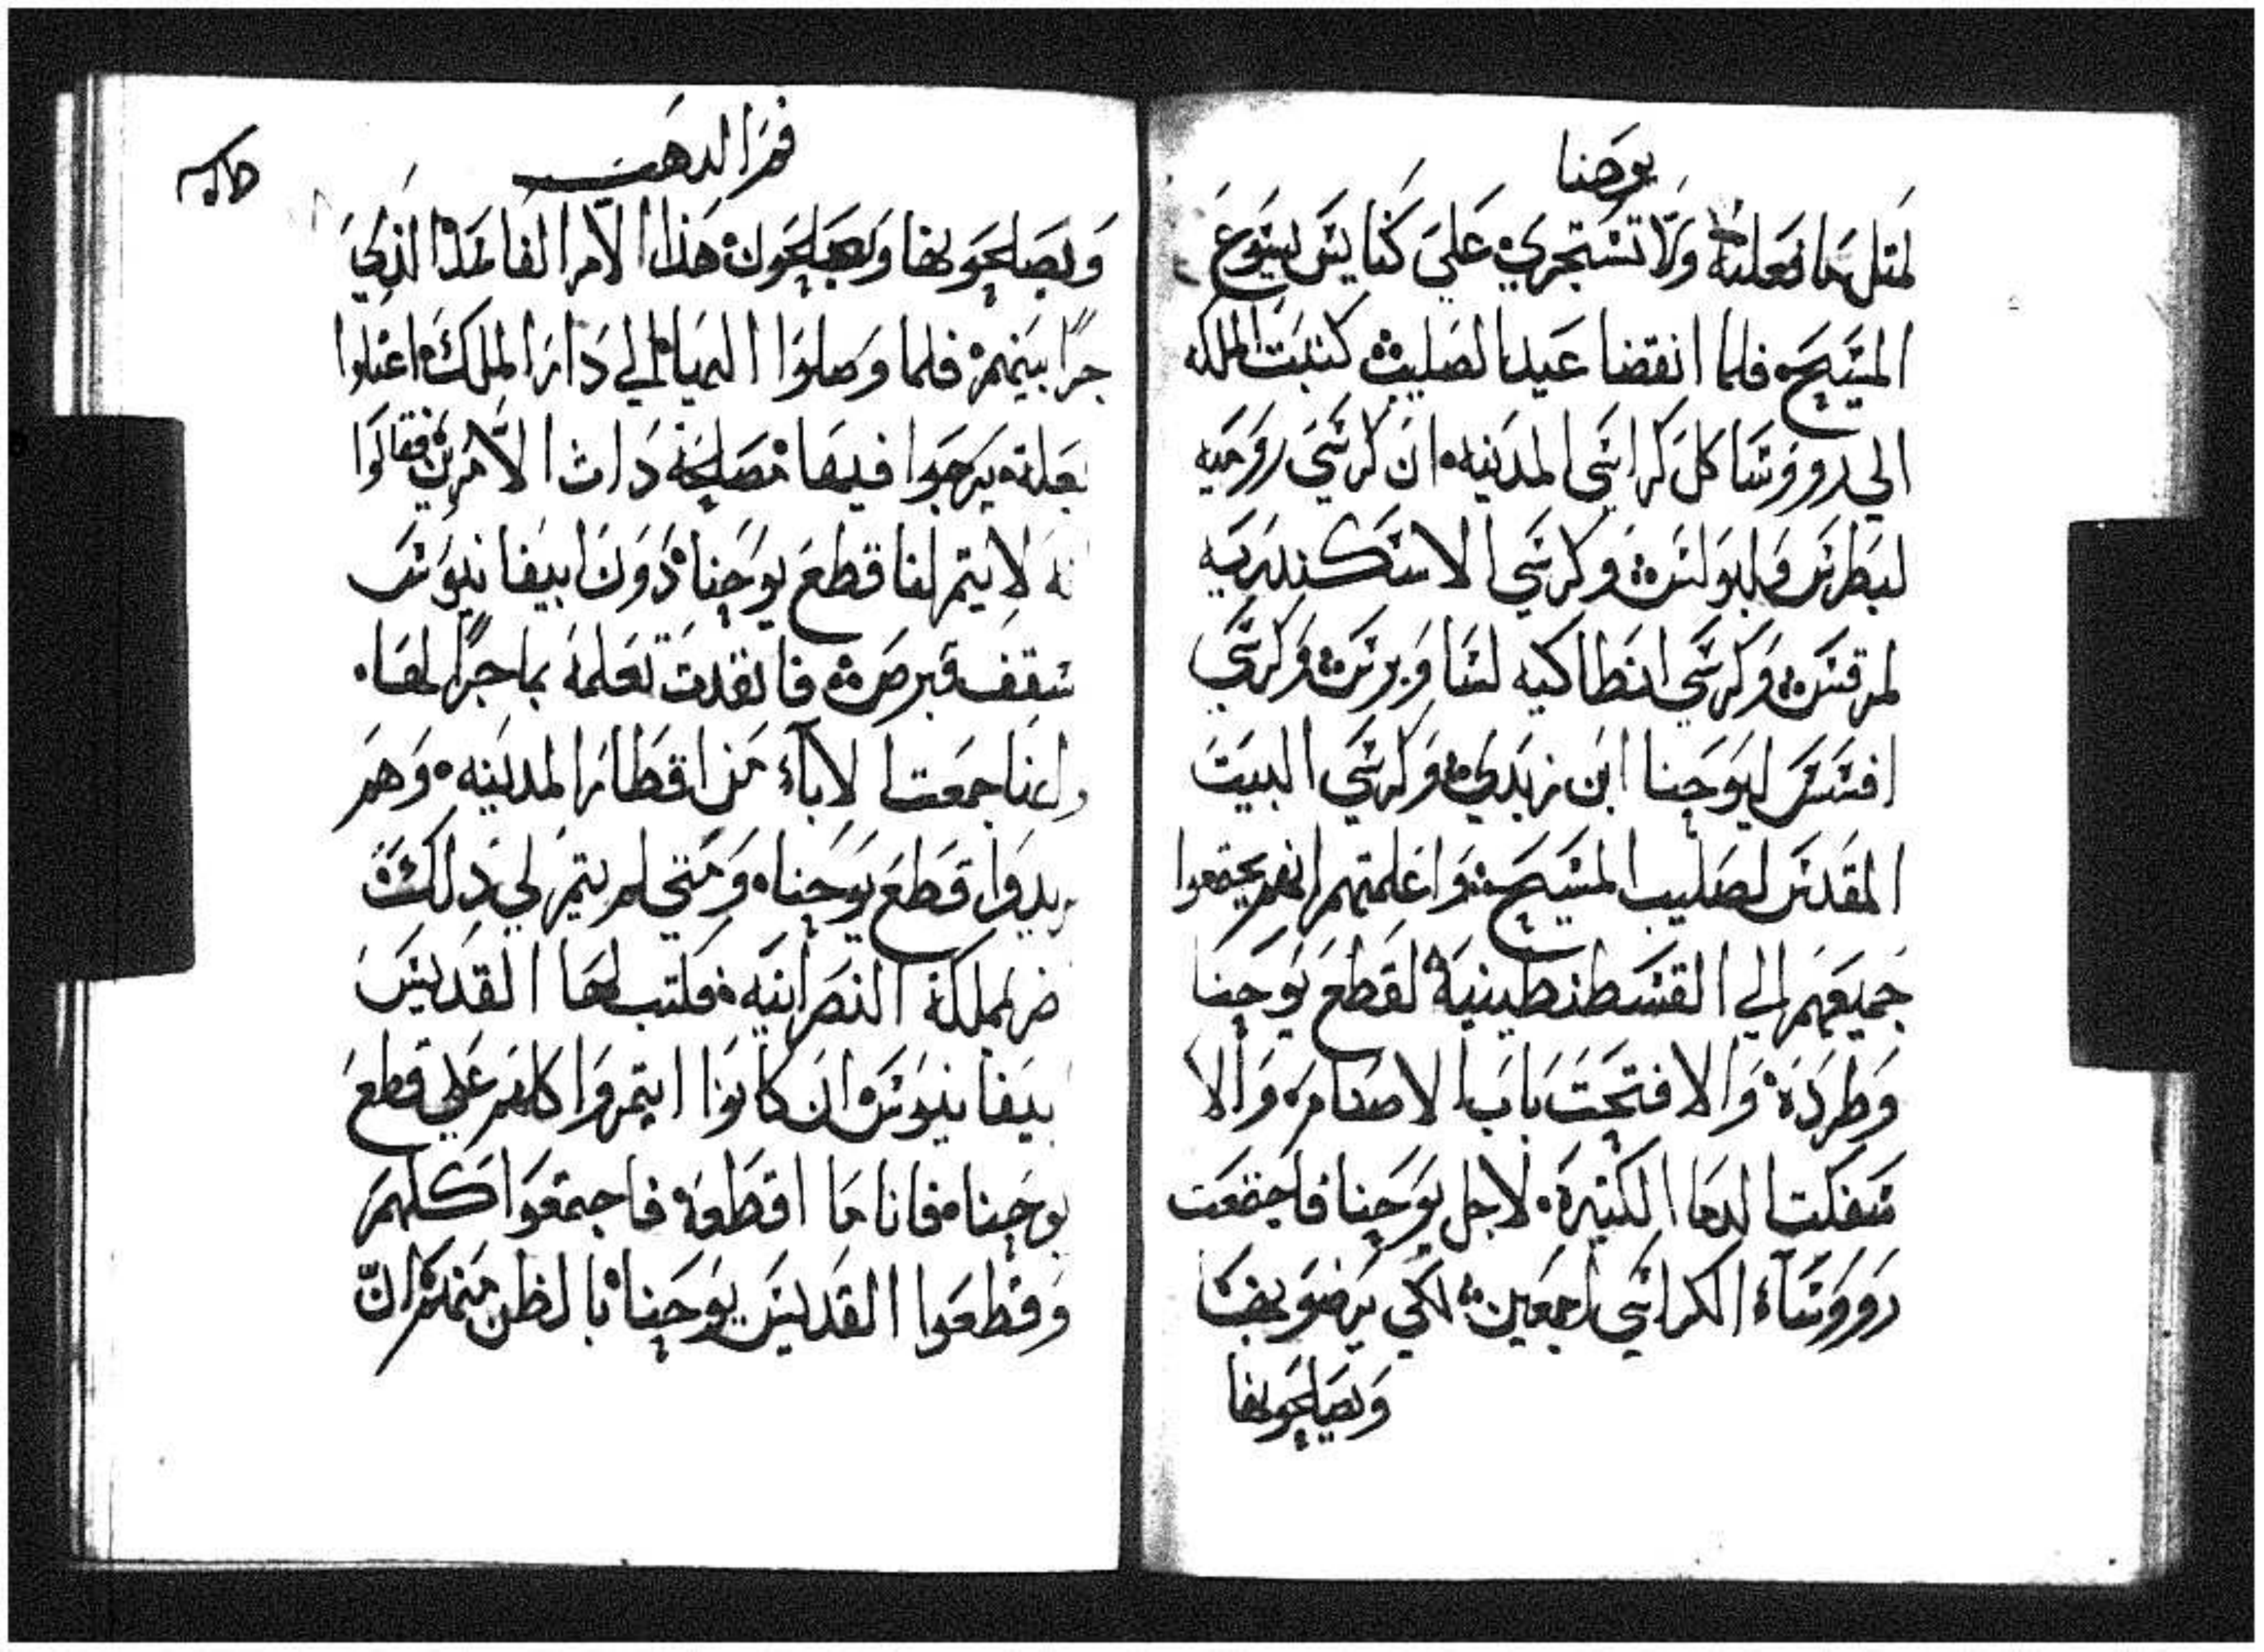 يوحنا
لمتل ما فعلته ولا تستجري على كنايس يسوع
المسيح فلما انقضا عيد الصليب كتبت الملكه
الي رووسا كل كراسي المدينه ان كرسي روميه
لبطرس وبولس وكرسي الاسكندريه
لمرقس وكرسي انطاكيه لساويرس وكرسي
افسس ليوحنا ابن زبدي وكرسي البيت
المقدس لصليب المسيح واعلمتهم انهم يجتمعوا
جميعهم الي القسطنطينية لقطع يوحنا
وطرده والا فتحت باب الاصنام والا
سفكت الدما الكتيرة لاجل يوحنا فاجتمعت
رووسآء الكراسي اجمعين لكي يرضو بها
ويصلحو بها
فم الدهب
ويصلحو بها ويصلحون هذا الامر الفاسد الذي
جرا بينهم فلما وصلوا اليها الي دار الملك اعتلوا
بعلة يرجوا فيها مصلحة دات الامرين فقالوا
لا يتم لنا قطع يوحنا دون ابيفانيوس
سقف قبرص فانفدت تعلمه بما جرا لها
جمعت الاباء من اقطار المدينه وهم
يريدوا قطع يوحنا ومتي لم يتم لي ذلك
المملكة النصرانيه فكتب لها القديس
ابيفانيوس ان كانوا ايتمروا كلهم علي قطع
يوحنا فانا ما اقطعه فاجتمعوا كلهم
وقطعوا القديس يوحنا بالظن منهم ان